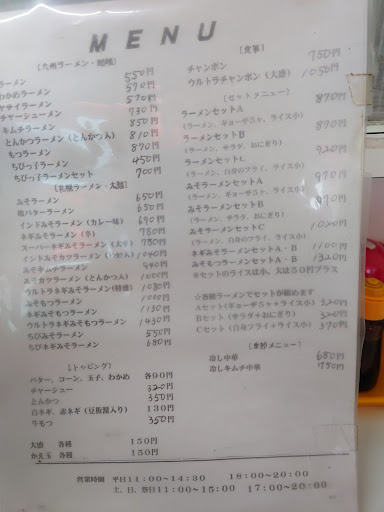 MENU
[九州ラーメン・細麺]
ラーメン 550円
わかめラーメン 570円
ヤサイラーメン 570円
チャーシューメン 730円
キムチラーメン 850円
とんかつラーメン(とんかつ入) 810円
もつラーメン 870円
ちびっ子ラーメン 450円
ちびっ子ラーメンセット 700円
[札幌ラーメン・太麺]
みそラーメン 650円
塩バターラーメン 650円
インドみそラーメン(カレー味) 690円
ネギみそラーメン(辛) 780円
スーパーネギみそラーメン(大辛) 780円
インドみそカツラーメン 1040円
みそキムチラーメン 940円
みそカツラーメン(とんかつ) 1000円
ウルトラネギみそラーメン(特盛) 1080円
みそもつラーメン 1000円
ネギみそもつラーメン 1130円
ウルトラネギみそもつラーメン 1430円
ちびみそラーメン 550円
ちびネギみそラーメン 680円
[トッピング]
バター、コーン、玉子、わかめ 各90円
チャーシュー 320円
とんかつ 350円
白ネギ、赤ネギ(豆板醤入り) 130円
牛もつ 350円
大盛 各種 150円
かえ玉 各種 150円
[食事]
チャンポン 750円
ウルトラチャンポン(大盛) 1050円
[セットメニュー]
ラーメンセットA 870円
(ラーメン、ギョーザ5ヶ、ライス小)
ラーメンセットB 870円
(ラーメン、サラダ、おにぎり)
ラーメンセットC 920円
(ラーメン、白身のフライ、ライス小)
みそラーメンセットA 970円
(ラーメン、ギョーザ5ヶ、ライス小)
みそラーメンセットB 970円
(ラーメン、サラダ、おにぎり)
みそラーメンセットC 1020円
(ラーメン、白身フライ、ライス小)
ネギみそラーメンセットA・B 1100円
みそもつラーメンセットA・B 1320円
※セットのライスは小、大は50円プラス
☆各種ラーメンでセットが組めます
Aセット(ギョーザ5ヶ+ライス小) 320円
Bセット(サラダ+おにぎり) 320円
Cセット(白身フライ+ライス小) 370円
[季節メニュー]
冷し中華 680円
冷しキムチ中華 780円
営業時間 平日11:00~14:30 18:00~20:00
土、日、祭日11:00~15:00 17:00~20:00